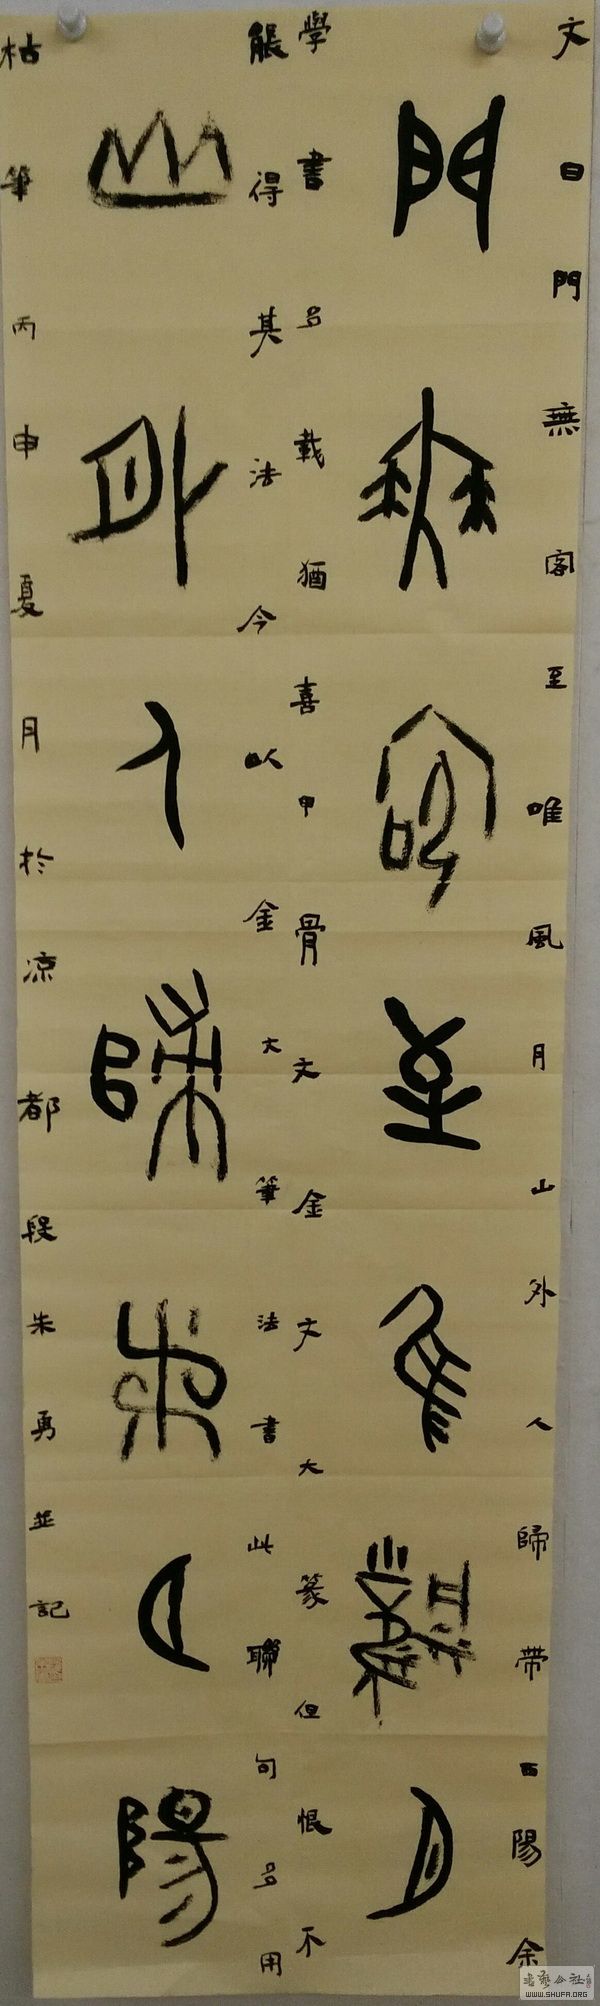 文曰門無客至唯風月山外人歸帶西陽余
門無客至唯風月
學書多載猶喜甲骨文金文大篆但恨不
能得其法今以金大筆法書此聯句多用
山外人歸帶夕陽
枯筆丙申夏月於凉都段朱勇並記
WWW.SHUFA.ORG